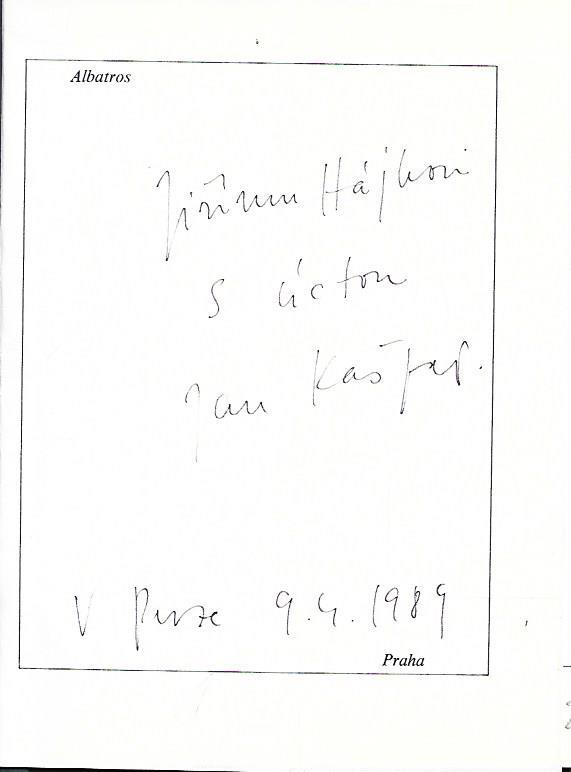 Albatros
Jiřímu Hájkovi
s úctou
Jan Kašpar.
V Praze 9.4.1989
Praha